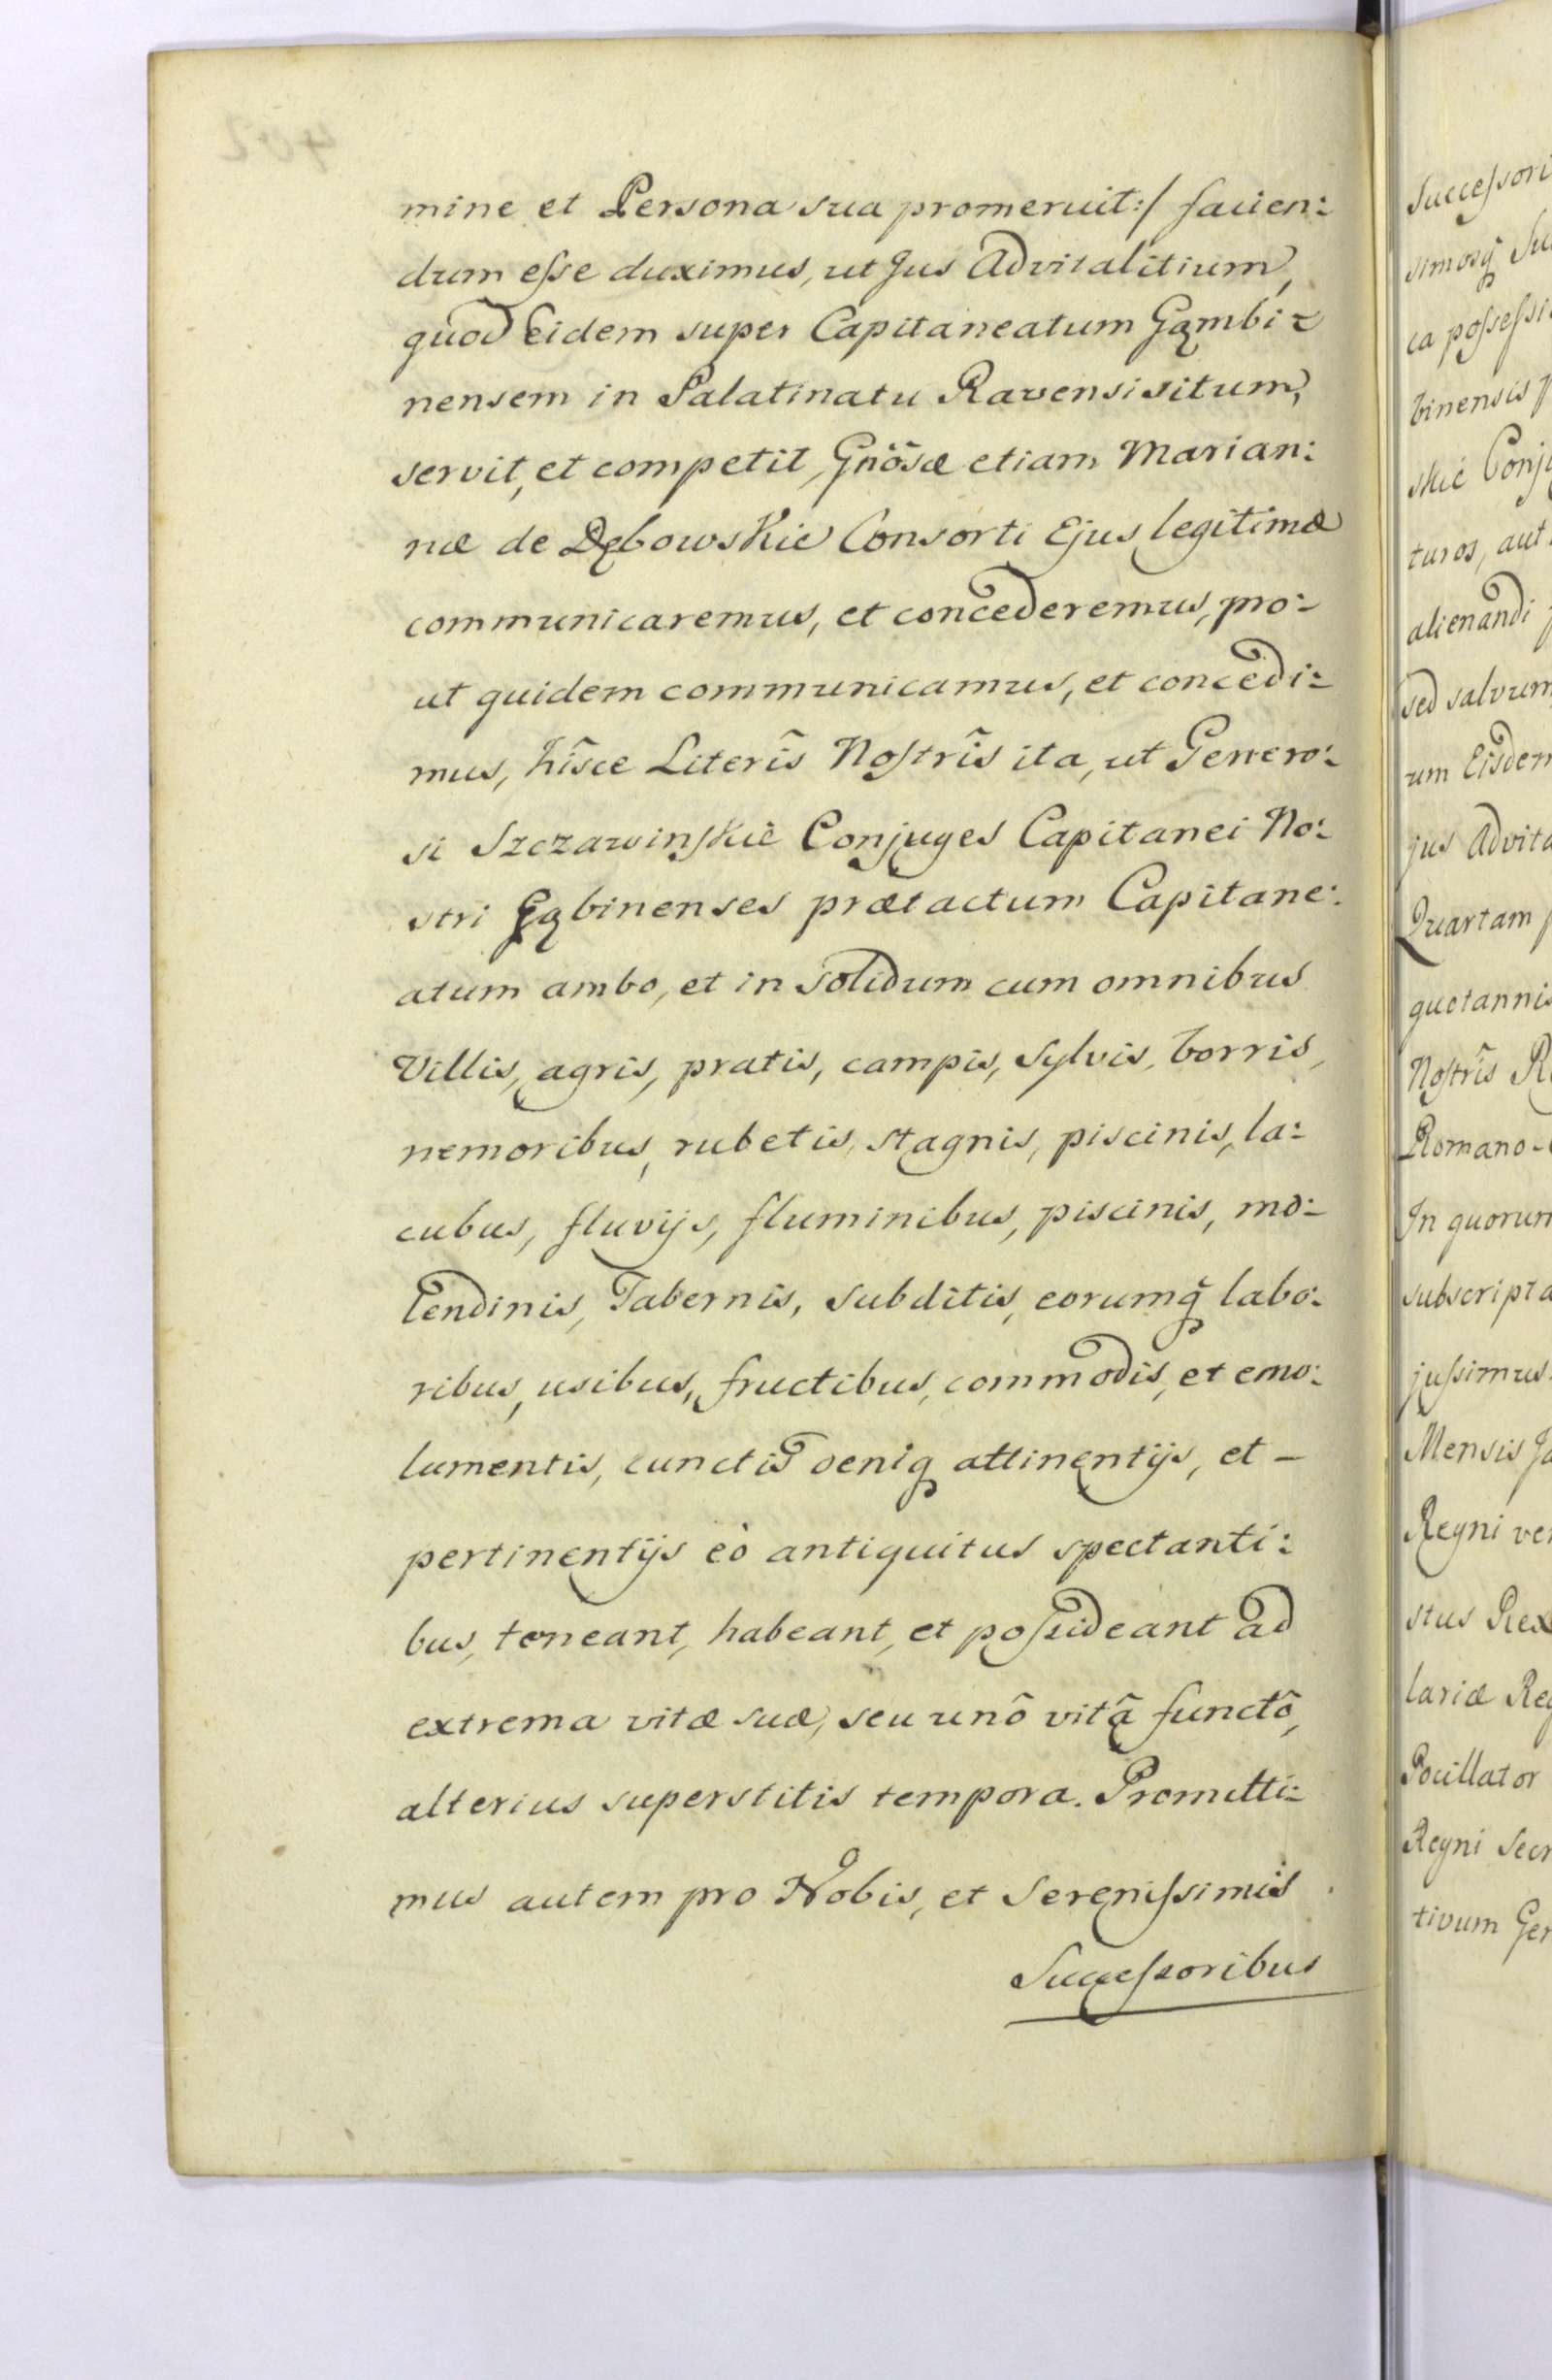 mine et Persona sua promeruit:/ facien:
drum esse duximus, ut Jus Advitalitium,
quod Eidem super Capitaneatum Gąmbi:
nensem in Palatinatu Ravensi situm,
servit, et competit, Gnõsæ etiam Marian:
næ de Dębowskie Consorti Ejus legitimæ
communicaremus, et concederemus, pro:
ut quidem communicamus, et concedi:
mus, hîsce Literîs Nostrîs ita, ut Genero:
si Szczawinskiè Conjuges Capitanei No:
stri Gąbinenses prætactum Capitane:
atum ambo, et in solidum cum omnibus
Villis, agris, pratis, campis, sylvis, borris,
nemoribus, rubetis, stagnis, piscinis, la:
cubus, fluvijs, fluminibus, piscinis, mo:
lendinis, Tabernis, subditis, eorumq̃ labo:
ribus, usibus, fructibus, commodis, et emo:
lumentis, cunctis deniq attinentijs, et –
pertinentijs eò antiquitus spectanti:
bus, teneant, habeant, et possideant ad
extrema vitæ suæ, seu unô vitâ functô,
alterius superstitis tempora. Promitti:
mus autem pro Nobis, et Serenissimis
Successoribus
Successori
simosq̃ Su
ca possessi
binensis p
skie Conj
turos, aut
alienandi
sed salvum
um Eisdem
jus Advita
Quartam p
quotannis
Nostrîs R
Romano-
In quorum
subscripta
jussimus.
Mensis Ja
Regni ve
stus Rex
lariæ Reg
Pocillator
Regni Secr
tivum Gen
402